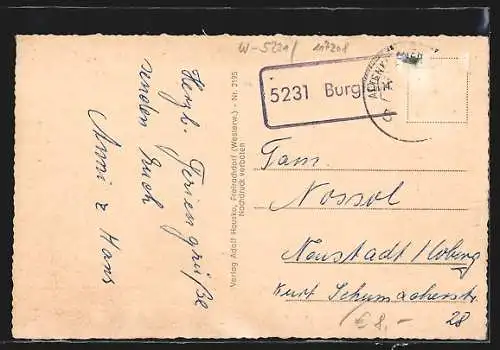 W-5231/ 117208
5231 Burglahr
ALTENKI
Herzl. Feriengrüße
senden Euch
Anni & Hans
Verlag Adolf Hauska, Freirachdorf (Westerw.) - Nr. 2195
Nachdruck verboten
Fam.
Nossol
Neustadt/Coburg
Kurt Schumacherstr.
28
€ 8,-